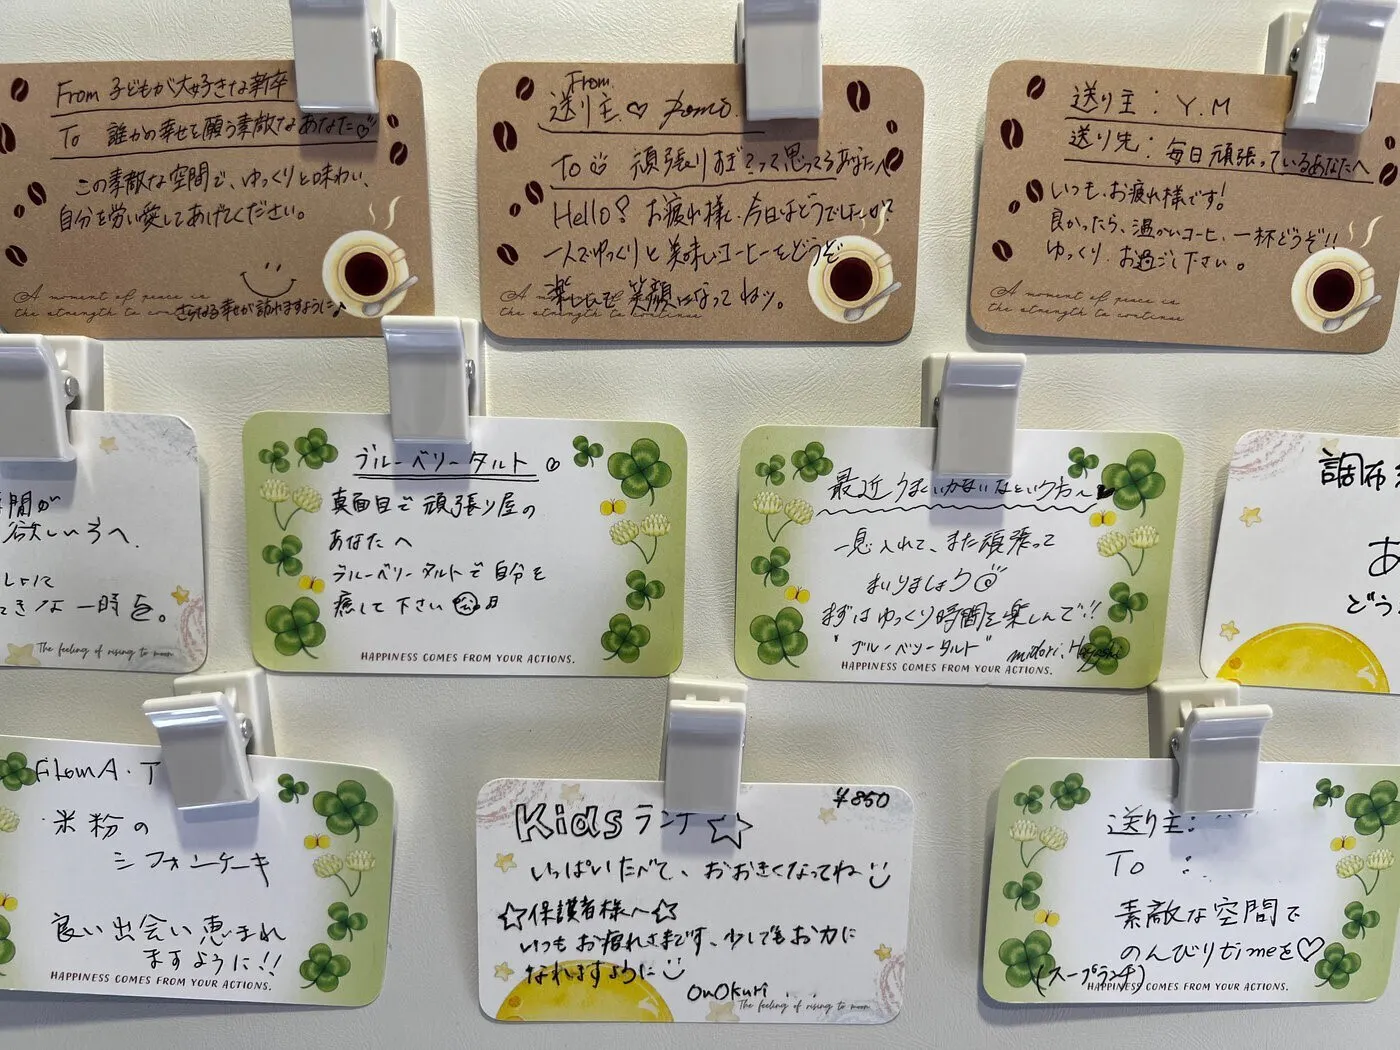 From 子どもが大好きな新卒
To 誰かの幸せを願う素敵なあなた♡
この素敵な空間で、ゆっくりと味わい、
自分を労い愛してあげてください。
A moment of peace is
the strength to
さらなる幸せが訪れますように♪
From
送り主♡
To 頑張りすぎ?って思ってるあなたへ
Hello! お疲れ様、今日はどうでしたか?
一人でゆっくりと美味しいコーヒーをどうぞ
楽しんで笑顔になってねッ。
the strength to continue
送り主：Y.M
送り先：毎日頑張っているあなたへ
いつも、お疲れ様です!
良かったら、温かいコーヒー、一杯どうぞ!!
ゆっくり、お過ごし下さい。
A moment of peace is
the strength to continue
間が
欲しい方へ
な一時を。
The feeling of rising to moon
ブルーベリータルト
真面目で頑張り屋の
あなたへ
ブルーベリータルトで自分を
癒して下さい
HAPPINESS COMES FROM YOUR ACTIONS.
最近うまくいかないなという方へ
一息入れて、また頑張って
まいりましょう
まずはゆっくり時間を楽しんで!!
"ブルーベリータルト"
midori.
HAPPINESS COMES FROM YOUR ACTIONS.
調布
あ
どう
From A・T
米粉の
シフォンケーキ
良い出会い恵まれ
ますように!!
HAPPINESS COMES FROM YOUR ACTIONS.
¥850
Kidsランチ☆
いっぱいたべて、おおきくなってね
☆保護者様へ☆
いつもお疲れさまです、少しでもお力に
なれますように
OnOkuri
The feeling of rising to moon
送り主：
To：
素敵な空間で
のんびりtimeを♡
(スープランチ)
HAPPINESS COMES FROM YOUR ACTIONS.